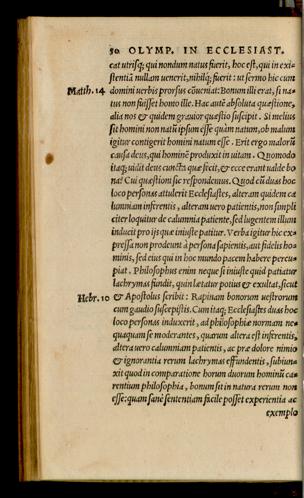 50 OLYMP. IN ECCLESIAST.
cat utrisq; qui nondum natus fuerit, hoc est, qui in exi-
stentiã nullam uenerit, nihilq; fuerit: ut sermo hic cum
Matth. 14 domini uerbis prorsus cõueniat: Bonum illi erat, si na-
tus non fuisset homo ille. Hac autẽ absoluta quæstione,
alia nos & quidem grauior quæstio suscipit. Si melius
sit homini non natũ ipsum esse quàm natum, ob malum
igitur contigerit homini natum esse. Erit ergo malorũ
causa deus, qui hominẽ produxit in uitam. Quomodo
itaq; uidit deus cuncta quæ fecit, & ecce erant ualde bo
na? Cui quæstioni sic respondemus. Quòd cũ duas hoc
loco personas attulerit Ecclesiastes, alteram quidem ca
lumniam inferentis, alteram uero patientis, non simpli
citer loquitur de calumnia patiente, sed lugentem illum
inducit pro ijs quæ iniuste patitur. Verba igitur hic ex-
pressa non prodeunt à persona sapientis, aut fidelis ho-
minis, sed eius qui in hoc mundo pacem habere percu-
piat. Philosophus enim neque si iniuste quid patiatur
lachrymas fundit, quin lætatur potius & exultat, sicut
Hebr. 10 & Apostolus scribit: Rapinam bonorum uestrorum
cum gaudio suscepistis. Cum itaq; Ecclesiastes duas hoc
loco personas induxerit, ad philosophiæ normam ne-
quaquam se moderantes, quarum altera est inferentis,
altera uero calumniam patientis, ac præ dolore nimio
& ignorantia rerum lachrymas effundentis, subiunx-
xit quod in comparatione horum duorum hominũ ca-
rentium philosophia, bonum sit in natura rerum non
esse: quam sanè sententiam facile posset experientia ac
exemplo